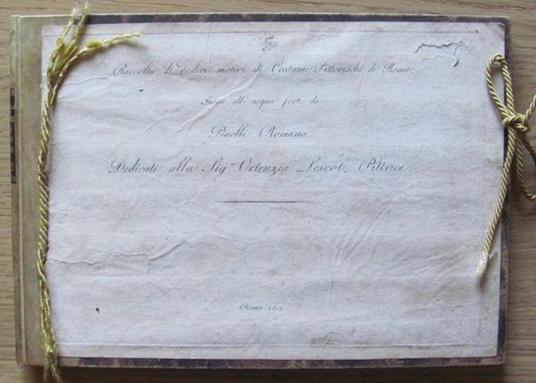 Raccolta di dodici motivi di Costumi Pittoreschi di Roma
Incisi all' acqua forte da
Pinelli Romano
Dedicati alla Sig.ra Ortenzia Lescot, Pittrice
Roma